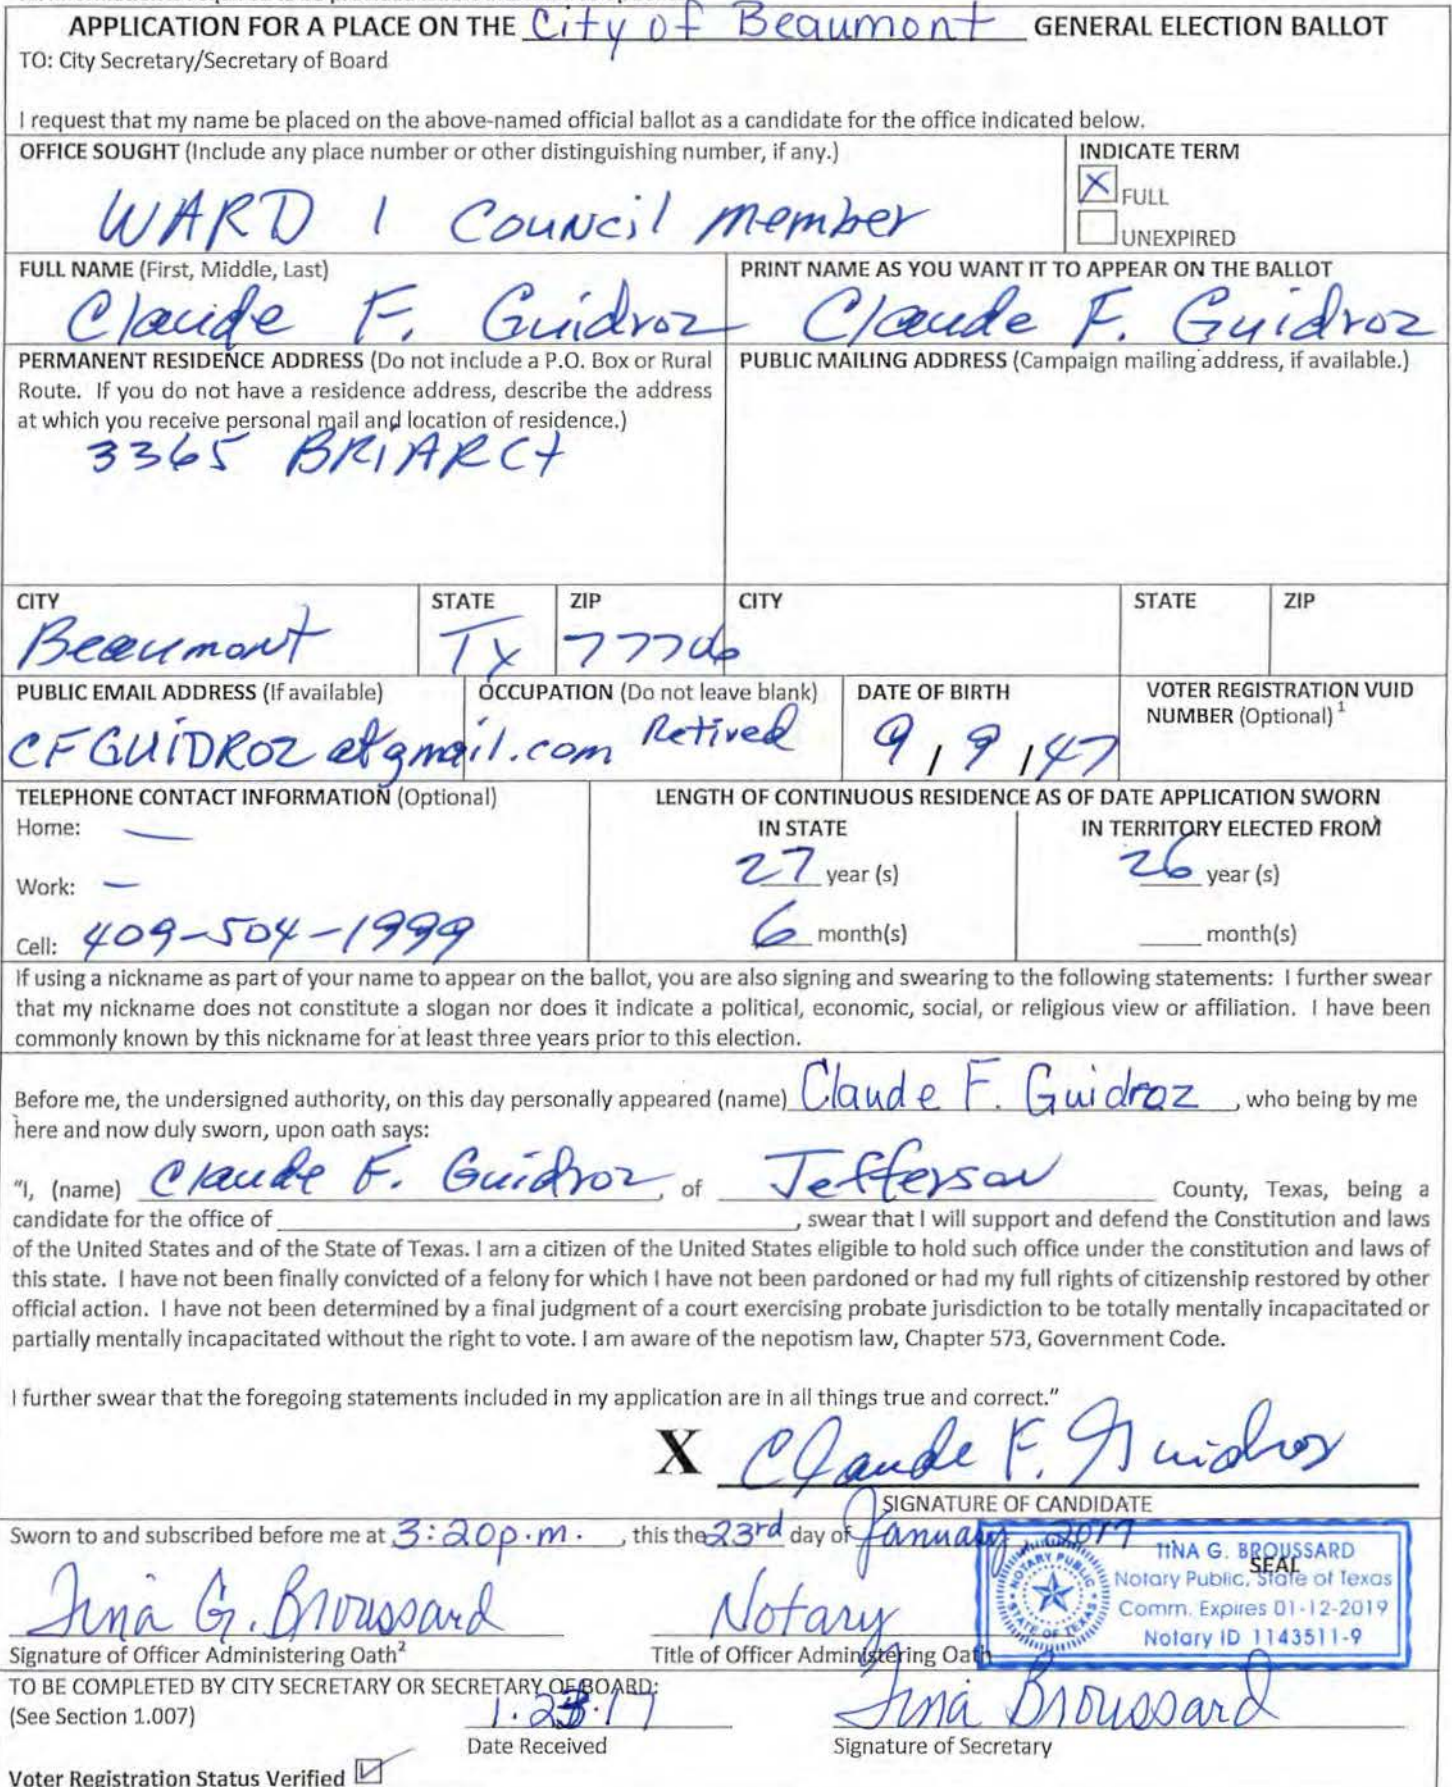 APPLICATION FOR A PLACE ON THE City of Beaumont GENERAL ELECTION BALLOT
TO: City Secretary/Secretary of Board
I request that my name be placed on the above-named official ballot as a candidate for the office indicated below.
OFFICE SOUGHT (Include any place number or other distinguishing number, if any.)
WARD 1 Council member
INDICATE TERM
X FULL
UNEXPIRED
FULL NAME (First, Middle, Last)
Claude F. Guidroz
PRINT NAME AS YOU WANT IT TO APPEAR ON THE BALLOT
Claude F. Guidroz
PERMANENT RESIDENCE ADDRESS (Do not include a P.O. Box or Rural
Route. If you do not have a residence address, describe the address
at which you receive personal mail and location of residence.)
3365 BRIARCt
PUBLIC MAILING ADDRESS (Campaign mailing address, if available.)
CITY STATE ZIP CITY STATE ZIP
Beaumont Tx 77706
PUBLIC EMAIL ADDRESS (If available)
CFGUIDROZ atgmail.com
OCCUPATION (Do not leave blank)
Retired
DATE OF BIRTH
9/9/47
VOTER REGISTRATION VUID
NUMBER (Optional) 1
TELEPHONE CONTACT INFORMATION (Optional)
Home: —
Work: —
Cell: 409-504-1999
LENGTH OF CONTINUOUS RESIDENCE AS OF DATE APPLICATION SWORN
IN STATE IN TERRITORY ELECTED FROM
27 year (s) 26 year (s)
6 month(s) month(s)
If using a nickname as part of your name to appear on the ballot, you are also signing and swearing to the following statements: I further swear
that my nickname does not constitute a slogan nor does it indicate a political, economic, social, or religious view or affiliation. I have been
commonly known by this nickname for at least three years prior to this election.
Before me, the undersigned authority, on this day personally appeared (name) Claude F. Guidroz, who being by me
here and now duly sworn, upon oath says:
"I, (name) Claude F. Guidroz, of Jefferson County, Texas, being a
candidate for the office of , swear that I will support and defend the Constitution and laws
of the United States and of the State of Texas. I am a citizen of the United States eligible to hold such office under the constitution and laws of
this state. I have not been finally convicted of a felony for which I have not been pardoned or had my full rights of citizenship restored by other
official action. I have not been determined by a final judgment of a court exercising probate jurisdiction to be totally mentally incapacitated or
partially mentally incapacitated without the right to vote. I am aware of the nepotism law, Chapter 573, Government Code.
I further swear that the foregoing statements included in my application are in all things true and correct."
X Claude F. Guidroz
SIGNATURE OF CANDIDATE
Sworn to and subscribed before me at 3:20p.m., this the 23rd day of January 2017
NOTARY PUBLIC STATE OF TEXAS
TINA G. BROUSSARD
SEAL
Notary Public, State of Texas
Comm. Expires 01-12-2019
Notary ID 1143511-9
Tina G. Broussard Notary
Signature of Officer Administering Oath2 Title of Officer Administering Oath
TO BE COMPLETED BY CITY SECRETARY OR SECRETARY OF BOARD:
(See Section 1.007)
1.23.17 Tina Broussard
Date Received Signature of Secretary
Voter Registration Status Verified